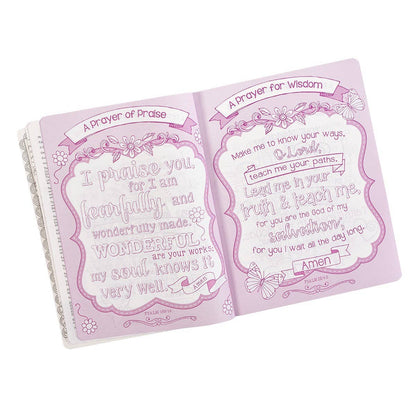 A Prayer of Praise
I praise you,
for I am
fearfully, and
wonderfully made.
WONDERFUL
are your works;
my soul knows it
very well.
Amen
A Prayer for Wisdom
Make me to know your ways,
O Lord;
teach me your paths.
Lead me in your
truth & teach me,
for you are the God of my
salvation;
for you I wait all the day long.
Amen